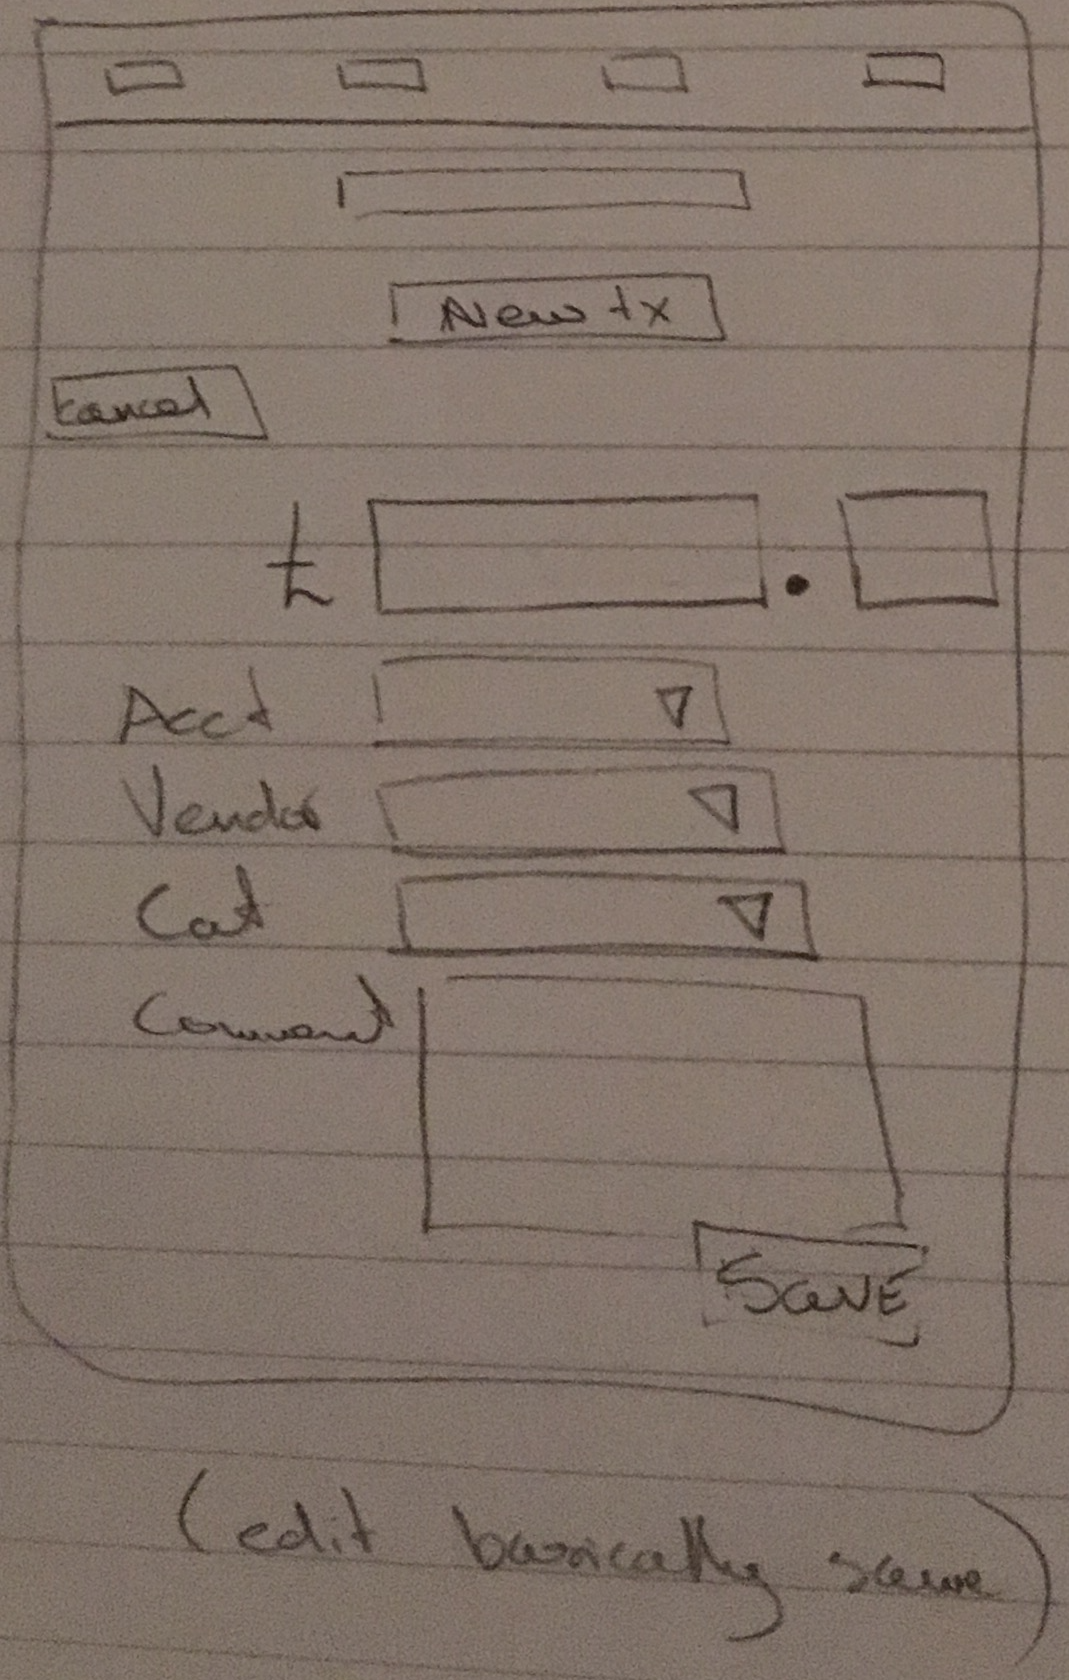 New tx
Cancel
£ .
Acct
Vendor
Cat
Comment
SAVE
(edit basically same)